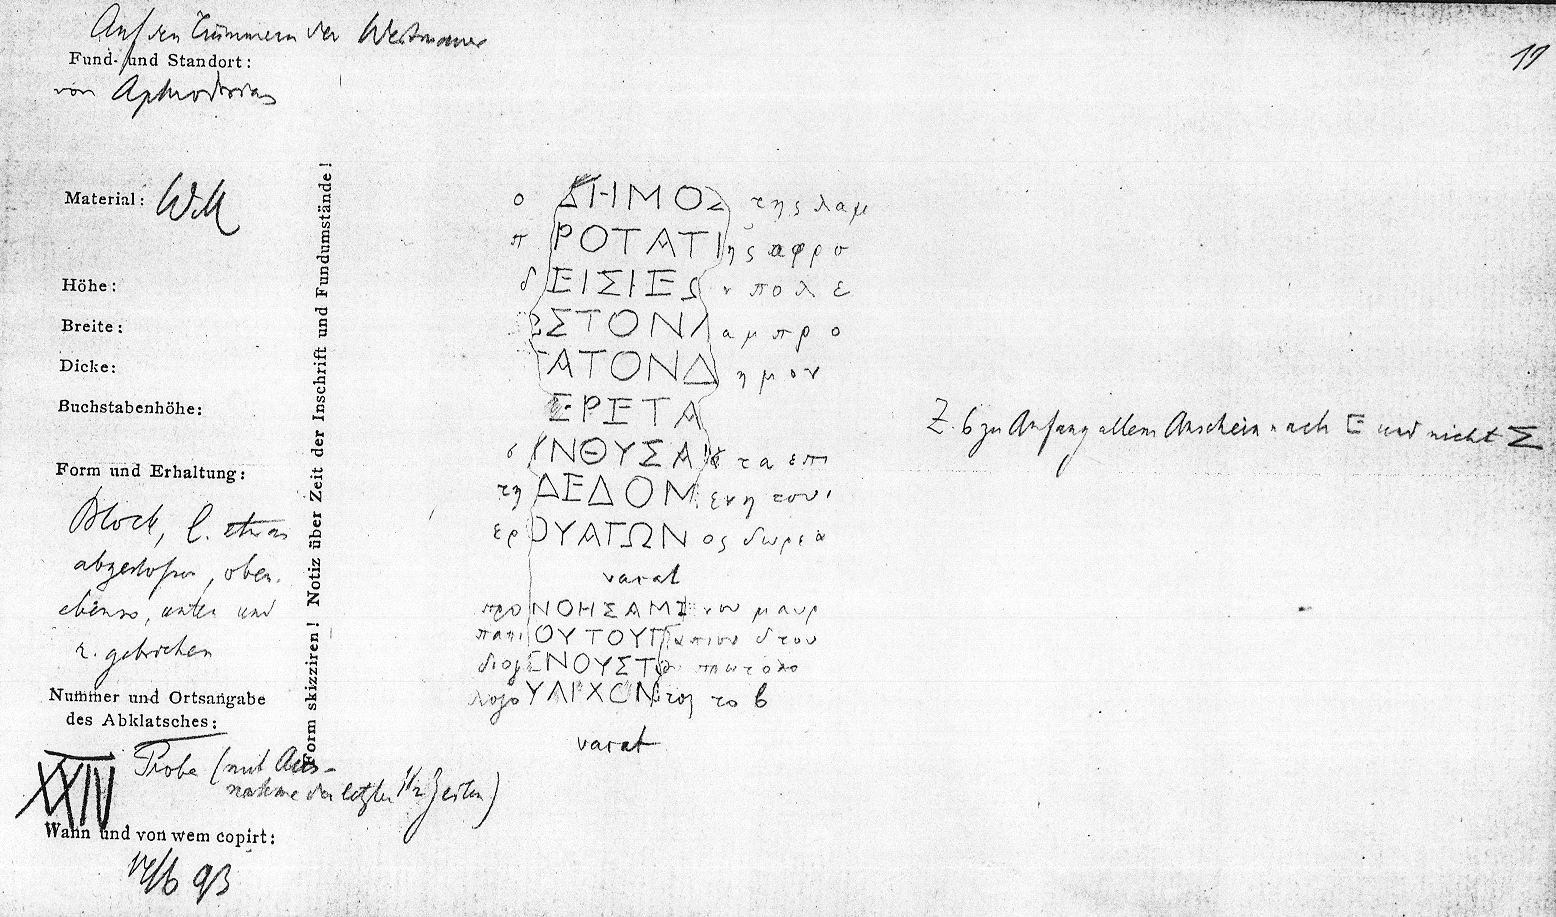 Auf den Trümmern der Westmauer
Fund- und Standort:
von Aphrodisias
17
Material: W. M
Höhe:
Breite:
Dicke:
Buchstabenhöhe:
Form und Erhaltung:
Block, l. etwas
abgestoßen, oben
ebenso, unten und
r. gebrochen
Nummer und Ortsangabe
des Abklatsches:
XXIV Probe (mit Aus-
nahme der letzten 1 1/2 Zeilen)
Wann und von wem copirt:
93
Form skizziren! Notiz über Zeit der Inschrift und Fundumstände!
ο ΔΗΜΟΣ της λαμ
π ΡΟΤΑΤΙης αφρο
δ ΕΙΣΙΕΩν πολε
ΩΣΤΟΝΛαμπρο
ΤΑΤΟΝΔημον
ΕΡΕΤΑ
σ ΥΝΘΥΣΑ τα επι
τη ΔΕΔΟΜενη του ι
ερ ΟΥΑΓΩΝος δωρεα
vacat
προ ΝΟΗΣΑΜΕνου μ αυρ
παπι ΟΥΤΟΥΠαπιου δ του
διογ ΕΝΟΥΣΤΟυ πρωτολο
λογο ΥΑΡΧΟΝτος το β
vacat
Z. 6 zu Anfang allem Anschein nach Ε und nicht Σ